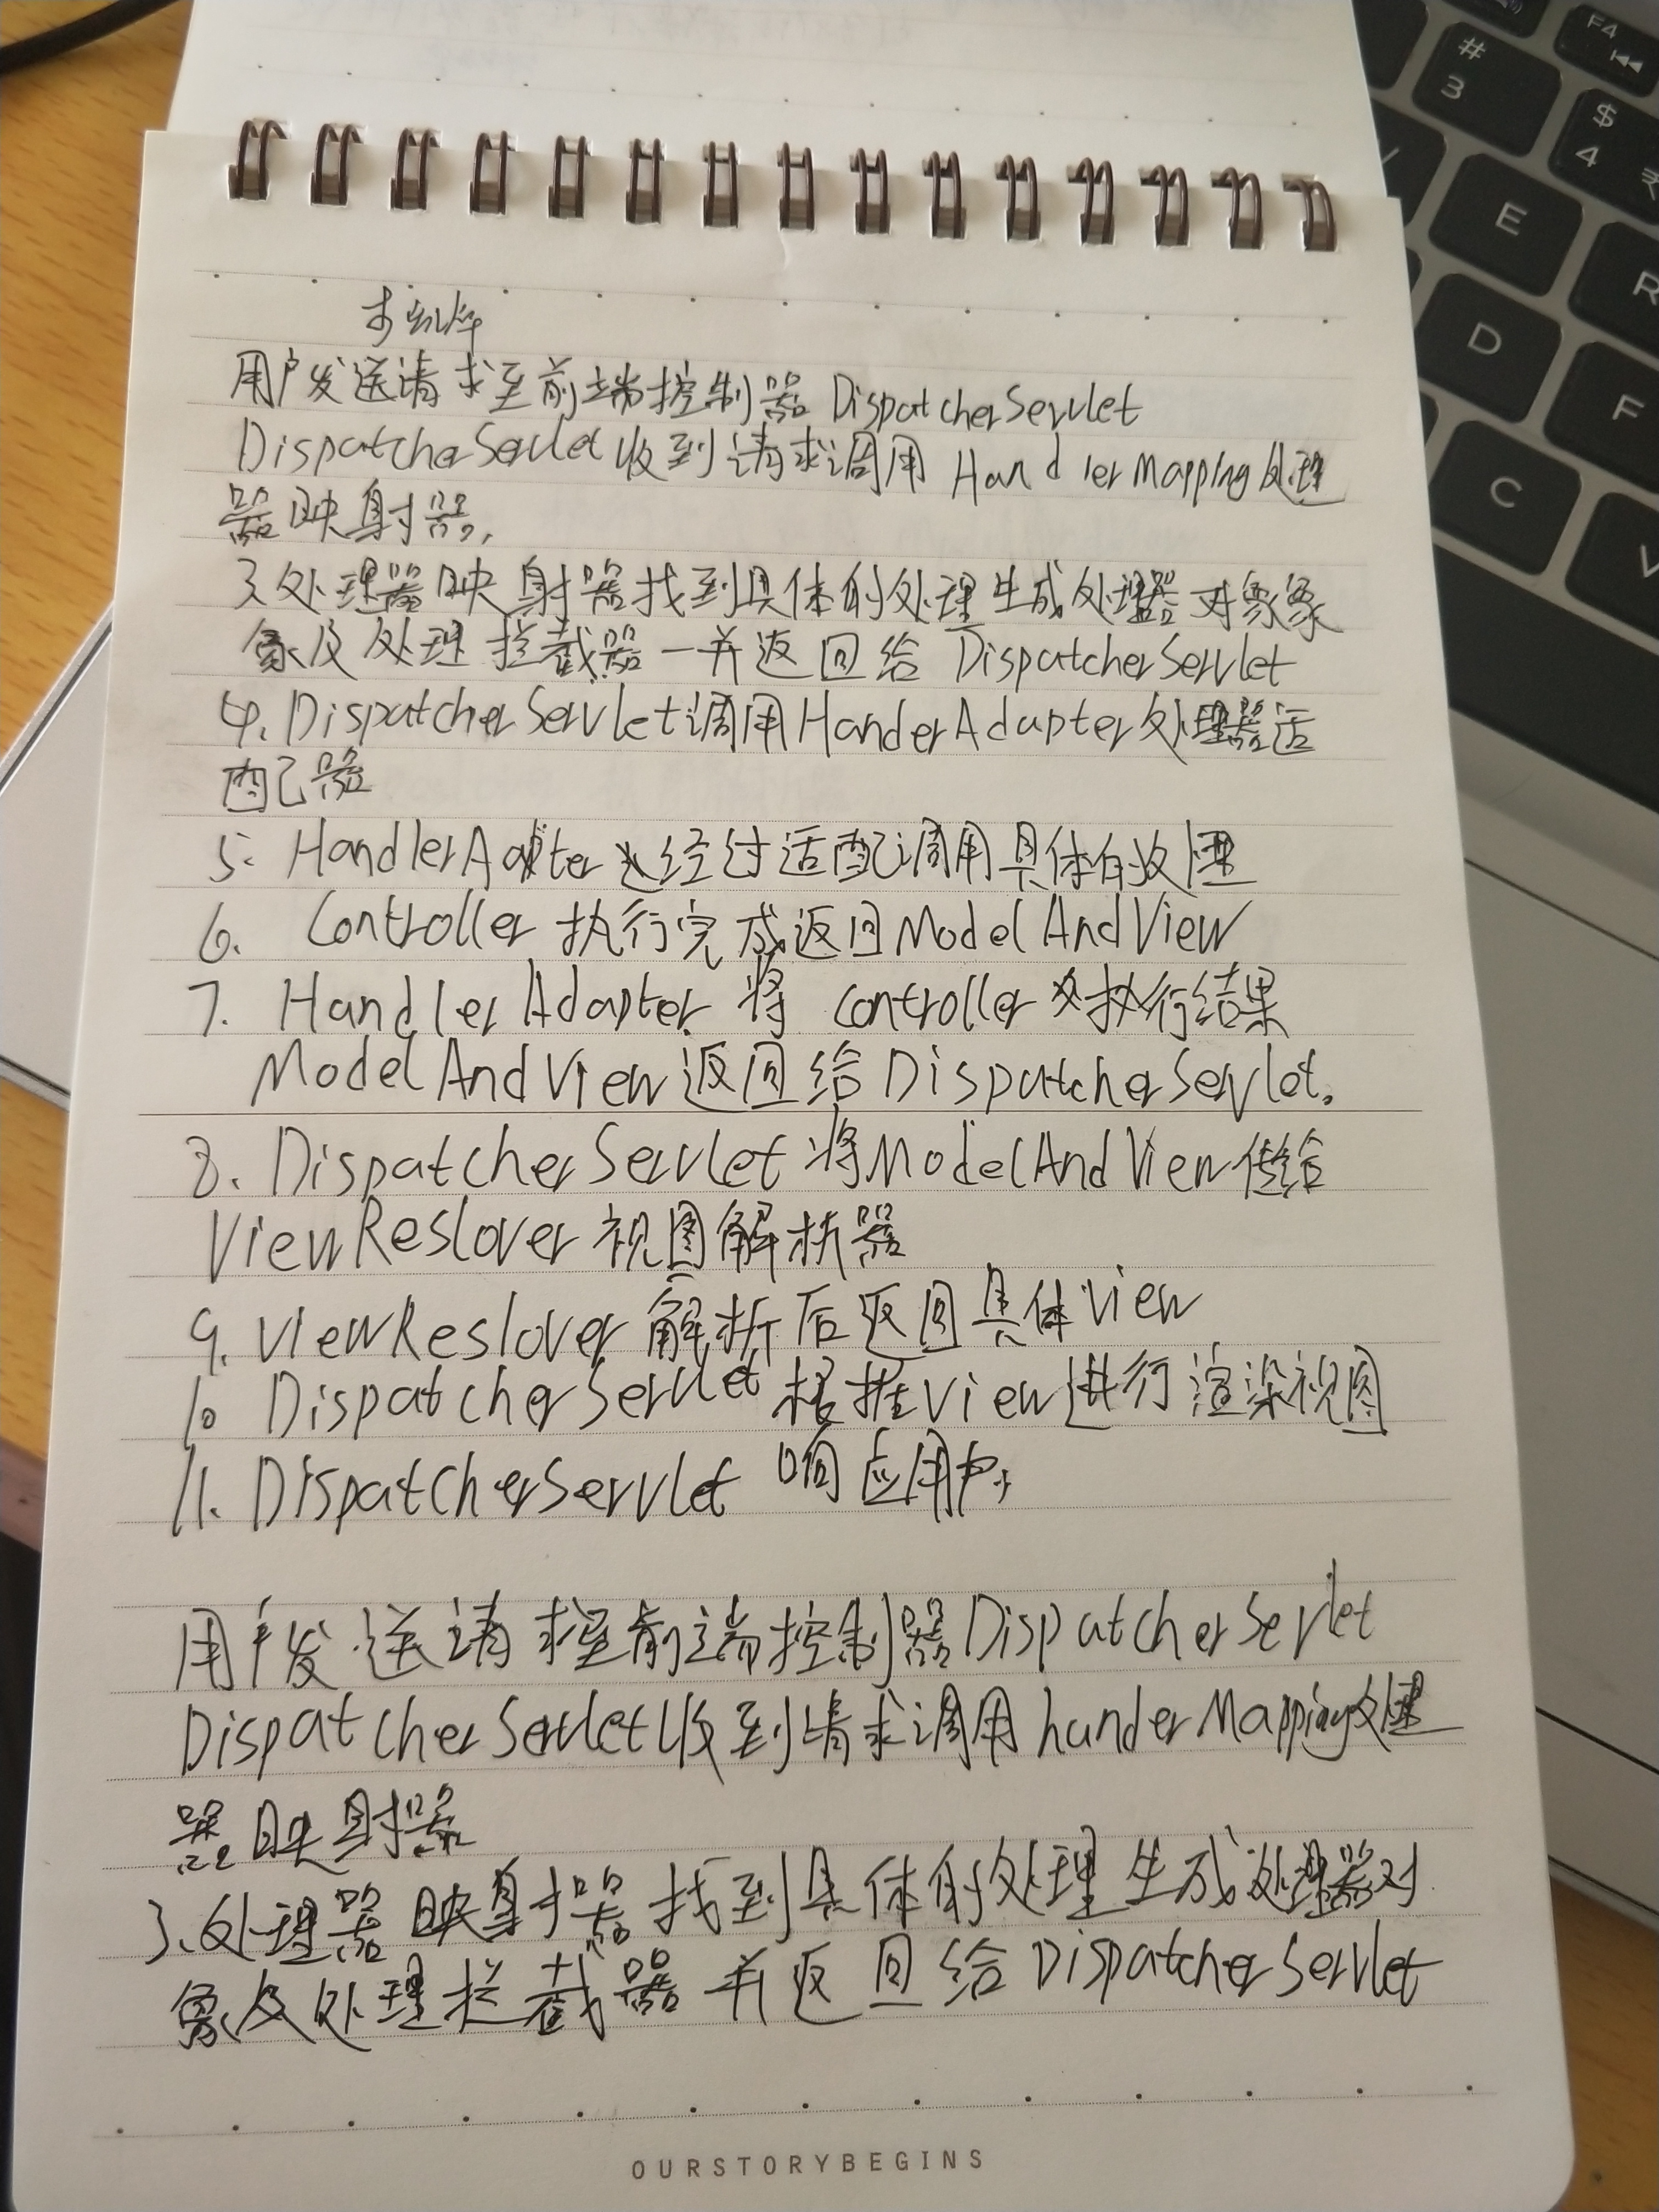 用户发送请求至前端控制器 DispatcherServlet
DispatcherServlet收到请求调用 HandlerMapping处理
器映射器,
3.处理器映射器找到具体的处理生成处理器对象象
象及处理拦截器一并返回给 DispatcherServlet
4.DispatcherServlet调用HanderAdapter处理器适
配器
5. HandlerAdpter 经过适配调用具体的处理
6. Controller 执行完成返回ModelAndView
7. HandlerAdapter 将 Controller 执行结果
ModelAndView返回给DispatcherServlet.
8. DispatcherServlet 将ModelAndView传给
ViewReslover 视图解析器
9. ViewReslover 解析后返回具体View
10 DispatcherServlet 根据View进行渲染视图
11. DispatcherServlet 响应用户.
用户发送请求至前端控制器DispatcherServlet
DispatcherServlet收到请求调用 handerMapping处理
器映射器
3.处理器映射器找到具体的处理生成处理器对
象及处理拦截器一并返回给DispatcherServlet
OURSTORYBEGINS
# 3
F4
$ 4
E
R
D
F
C
V